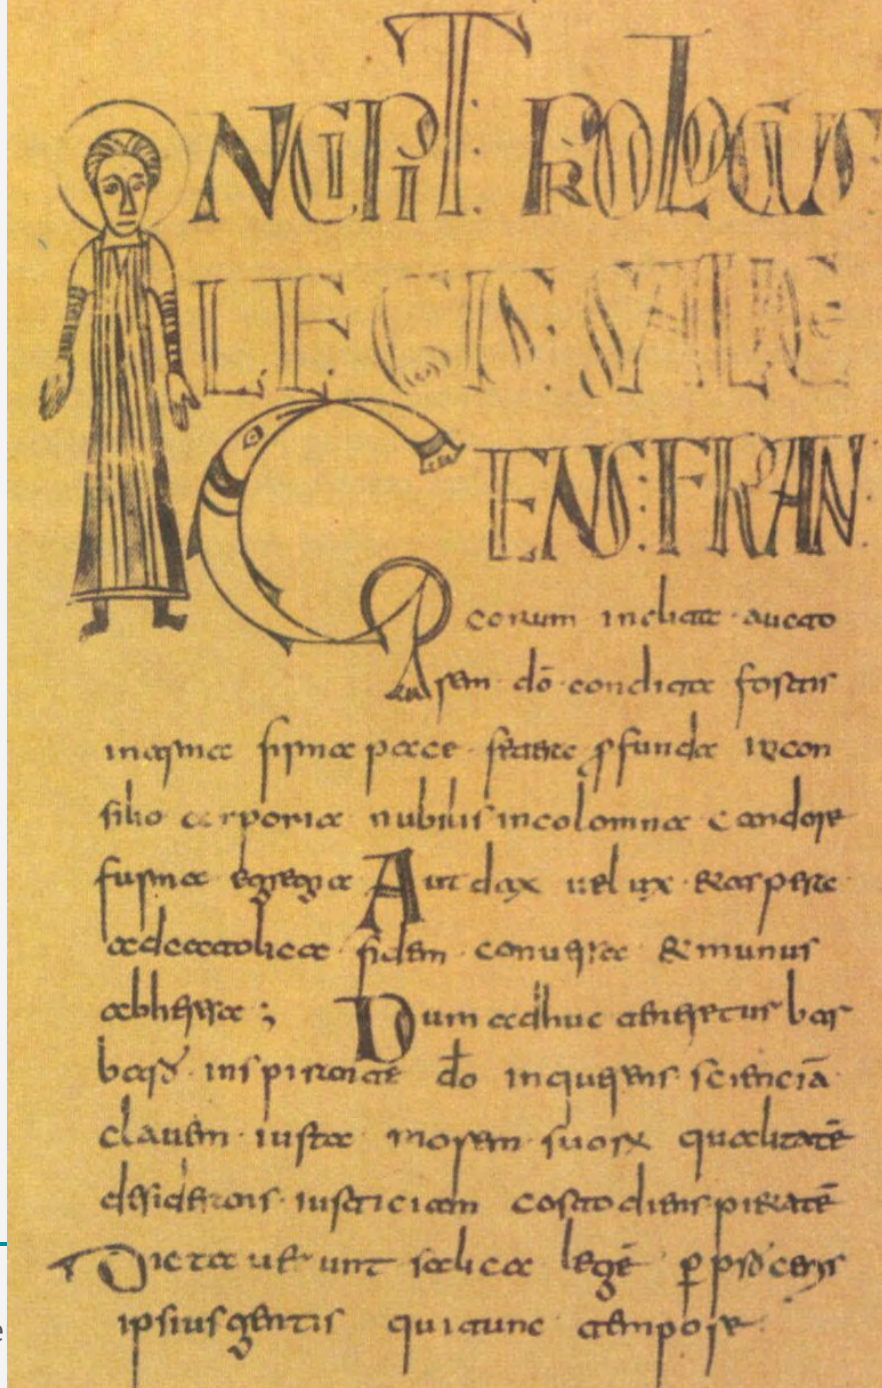 INCIPIT: PROLOGUS:
LEGIS: SALICE
GENS: FRAN
corum inclita aucto
rem dō condita fortis
inarma firma pace fetere ꝓfunda incon
silio corporia nubilis incolomna candore
furma egregia Autdax uelux et aspere
adcatolica fidem conuersa & munus
abheresa; Dum adhuc teneretur bar
barꝰ inspirante dō inquerens scienciā
clauem iusta morem suorꝝ qualitatē
desiderans iusticiam costodiens pietatē
Dictauerunt salica legē ꝑ proceris
ipsius gentis quitunc tempore